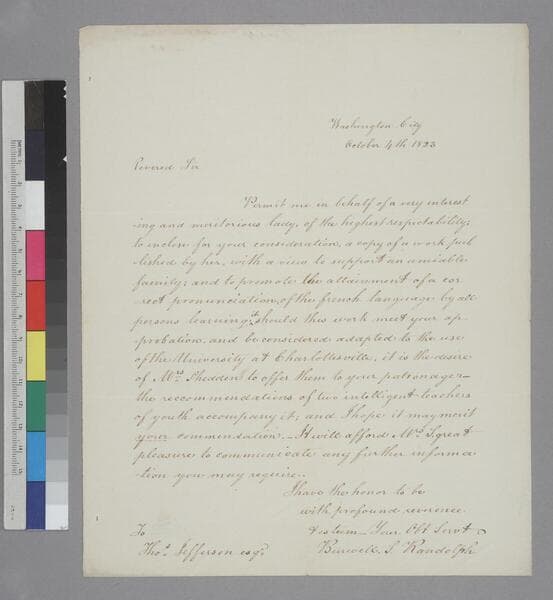 Washington City
October 4th 1823
Revered Sir
Permit me in behalf of a very interest
ing and meritorious lady, of the highest respectability;
to inclose for your consideration, a copy of a work pub
lished by her, with a view to support an amiable
family; and to promote the attainment of a cor
rect pronunciation, of the french language by all
persons learning it, should this work meet your ap
probation, and be considered adapted to the use
of the University at Charlottesville, it is the desire
of Mrs Shedden to offer them to your patronage—
the reccommendations of two intelligent teachers
of youth accompany it; and I hope it may merit
your commendation.—It will afford Mrs S. great
pleasure to communicate any further informa
tion you may require.
I have the honor to be
with profound reverence
& esteem—Your Obt Servt
To
Thos Jefferson esqr
Burwell S Randolph